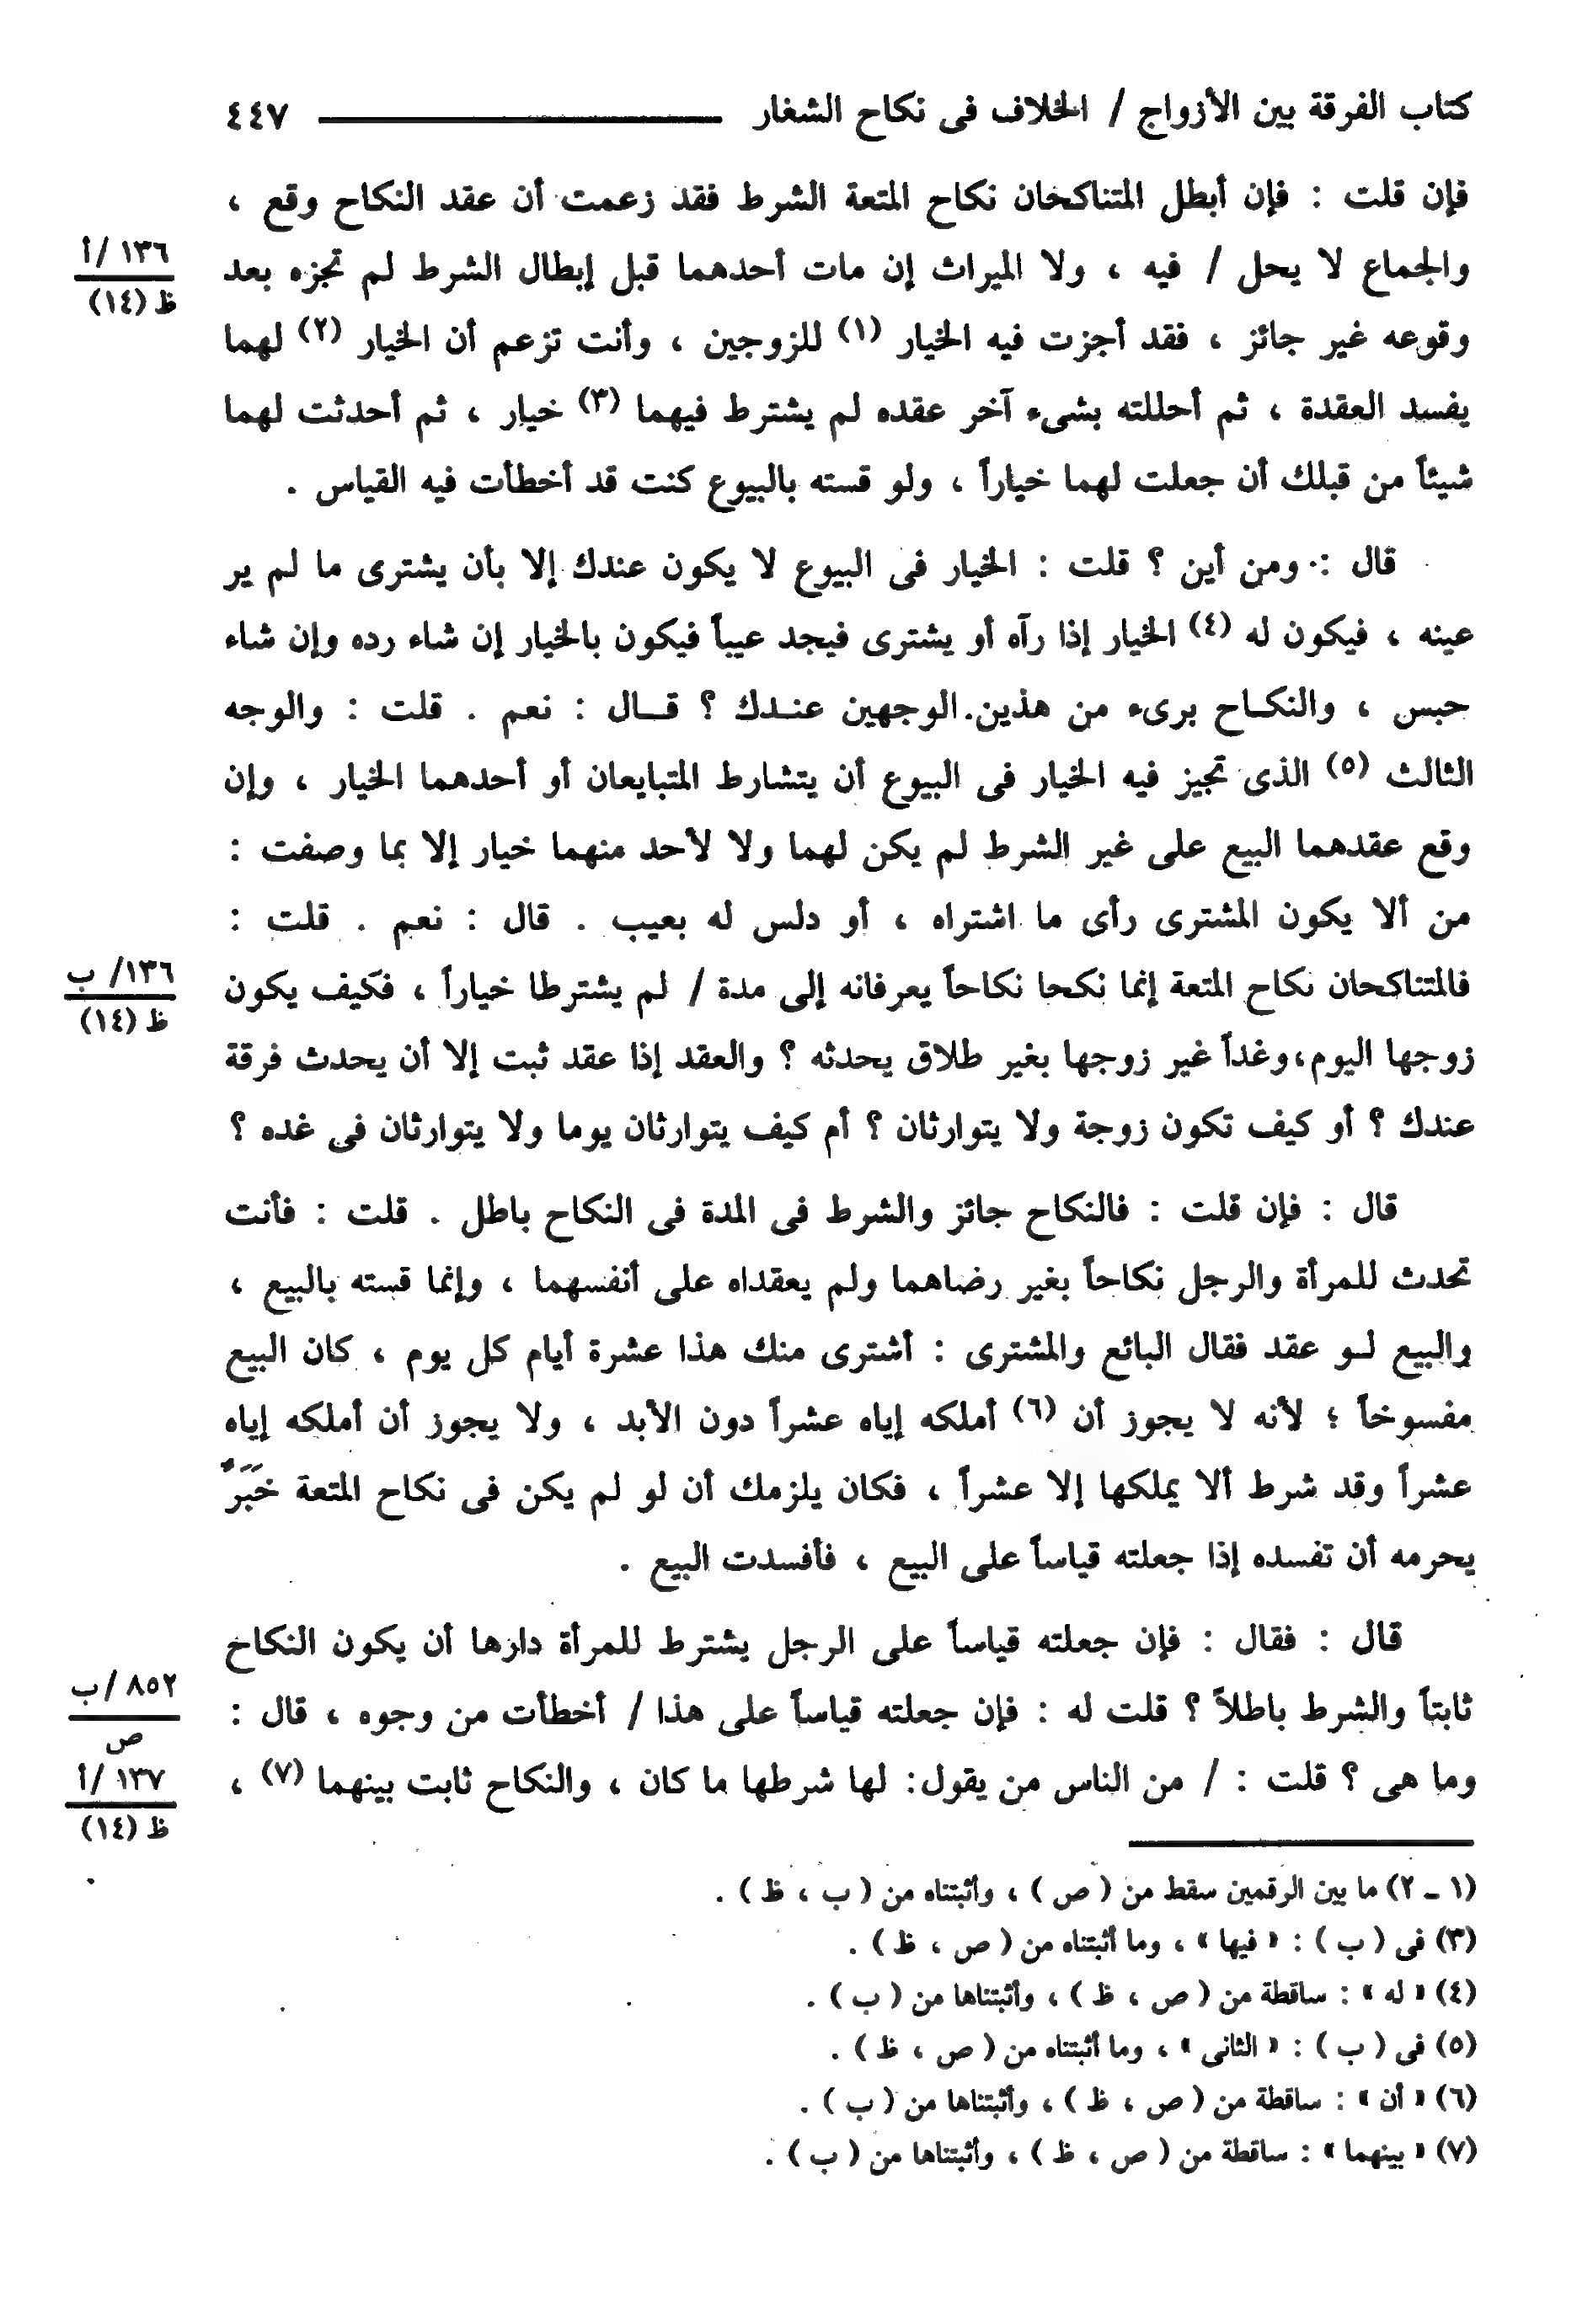 كتاب الفرقة بين الأزواج / الخلاف فى نكاح الشغار ٤٤٧
فإن قلت : فإن أبطل المتناكحان نكاح المتعة الشرط فقد زعمت أن عقد النكاح وقع ،
والجماع لا يحل / فيه ، ولا الميراث إن مات أحدهما قبل إبطال الشرط لم تجزه بعد
١٣٦ /أ
ظ (١٤)
وقوعه غير جائز ، فقد أجزت فيه الخيار (١) للزوجين ، وأنت تزعم أن الخيار (٢) لهما
يفسد العقدة ، ثم أحللته بشىء آخر عقده لم يشترط فيهما (٣) خيار ، ثم أحدثت لهما
شيئاً من قبلك أن جعلت لهما خياراً ، ولو قسته بالبيوع كنت قد أخطأت فيه القياس .
قال : ومن أين ؟ قلت : الخيار فى البيوع لا يكون عندك إلا بأن يشترى ما لم ير
عينه ، فيكون له (٤) الخيار إذا رآه أو يشترى فيجد عيباً فيكون بالخيار إن شاء رده وإن شاء
حبس ، والنكـاح برىء من هذين الوجهين عنـدك ؟ قـال : نعم . قلت : والوجه
الثالث (٥) الذى تجيز فيه الخيار فى البيوع أن يتشارط المتبايعان أو أحدهما الخيار ، وإن
وقع عقدهما البيع على غير الشرط لم يكن لهما ولا لأحد منهما خيار إلا بما وصفت :
من ألا يكون المشترى رأى ما اشتراه ، أو دلس له بعيب . قال : نعم . قلت :
فالمتناكحان نكاح المتعة إنما نكحا نكاحاً يعرفانه إلى مدة / لم يشترطا خياراً ، فكيف يكون
١٣٦/ ب
ظ (١٤)
زوجها اليوم ،وغداً غير زوجها بغير طلاق يحدثه ؟ والعقد إذا عقد ثبت إلا أن يحدث فرقة
عندك ؟ أو كيف تكون زوجة ولا يتوارثان ؟ أم كيف يتوارثان يوما ولا يتوارثان فى غده ؟
قال : فإن قلت : فالنكاح جائز والشرط فى المدة فى النكاح باطل . قلت : فأنت
تحدث للمرأة والرجل نكاحاً بغير رضاهما ولم يعقداه على أنفسهما ، وإنما قسته بالبيع ،
والبيع لـو عقد فقال البائع والمشترى : أشترى منك هذا عشرة أيام كل يوم ، كان البيع
مفسوخاً ؛ لأنه لا يجوز أن (٦) أملكه إياه عشراً دون الأبد ، ولا يجوز أن أملكه إياه
عشراً وقد شرط ألا يملكها إلا عشراً ، فكان يلزمك أن لو لم يكن فى نكاح المتعة خَبَرٌ
يحرمه أن تفسده إذا جعلته قياساً على البيع ، فأفسدت البيع .
قال : فقال : فإن جعلته قياساً على الرجل يشترط للمرأة دارها أن يكون النكاح
ثابتاً والشرط باطلاً ؟ قلت له : فإن جعلته قياساً على هذا / أخطأت من وجوه ، قال :
٨٥٢ /ب
ص
وما هى ؟ قلت : / من الناس من يقول: لها شرطها ما كان ، والنكاح ثابت بينهما (٧) ،
١٣٧ /أ
ظ (١٤)
(١ ـ ٢) ما بين الرقمين سقط من ( ص ) ، وأثبتناه من ( ب ، ظ ) .
(٣) فى ( ب ) : « فيها » ، وما أثبتناه من ( ص ، ظ ) .
(٤) « له » : ساقطة من ( ص ، ظ ) ، وأثبتناها من ( ب ) .
(٥) فى ( ب ) : « الثانى » ، وما أثبتناه من ( ص ، ظ ) .
(٦) « أن » : ساقطة من ( ص ، ظ ) ، وأثبتناها من ( ب ) .
(٧) « بينهما » : ساقطة من ( ص ، ظ ) ، وأثبتناها من ( ب ) .